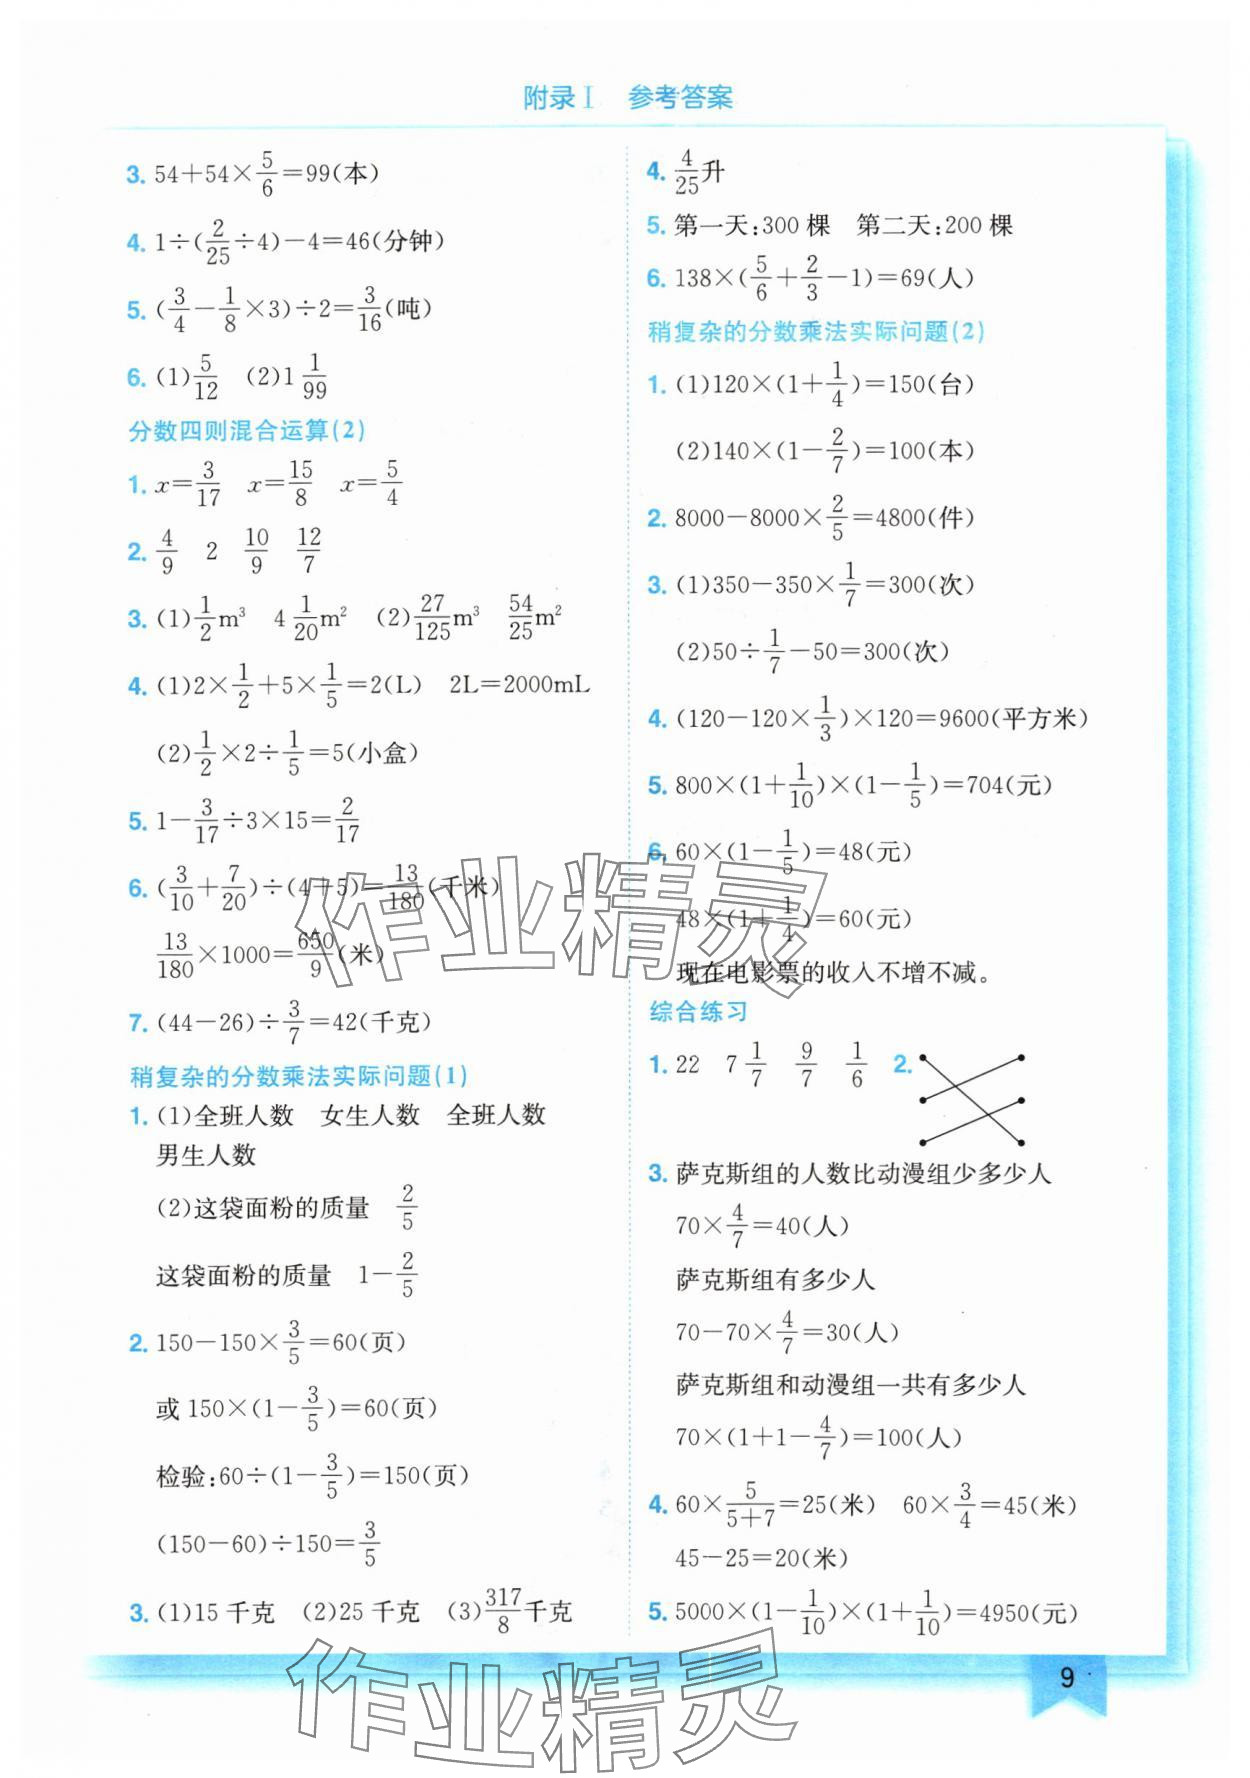 附录Ⅰ 参考答案
3. 54+54×5/6=99(本)
4. 1÷(2/25÷4)-4=46(分钟)
5. (3/4-1/8×3)÷2=3/16(吨)
6. (1)5/12 (2)1 1/99
分数四则混合运算(2)
1. x=3/17 x=15/8 x=5/4
2. 4/9 2 10/9 12/7
3. (1)1/2m³ 4 1/20m² (2)27/125m³ 54/25m²
4. (1)2×1/2+5×1/5=2(L) 2L=2000mL
(2)1/2×2÷1/5=5(小盒)
5. 1-3/17÷3×15=2/17
6. (3/10+7/20)÷(4+5)=13/180(千米)
13/180×1000=650/9(米)
7. (44-26)÷3/7=42(千克)
稍复杂的分数乘法实际问题(1)
1. (1)全班人数 女生人数 全班人数
男生人数
(2)这袋面粉的质量 2/5
这袋面粉的质量 1-2/5
2. 150-150×3/5=60(页)
或 150×(1-3/5)=60(页)
检验:60÷(1-3/5)=150(页)
(150-60)÷150=3/5
3. (1)15 千克 (2)25 千克 (3)317/8千克
4. 4/25升
5. 第一天:300 棵 第二天:200 棵
6. 138×(5/6+2/3-1)=69(人)
稍复杂的分数乘法实际问题(2)
1. (1)120×(1+1/4)=150(台)
(2)140×(1-2/7)=100(本)
2. 8000-8000×2/5=4800(件)
3. (1)350-350×1/7=300(次)
(2)50÷1/7-50=300(次)
4. (120-120×1/3)×120=9600(平方米)
5. 800×(1+1/10)×(1-1/5)=704(元)
6. 60×(1-1/5)=48(元)
48×(1+1/4)=60(元)
现在电影票的收入不增不减。
综合练习
1. 22 7 1/7 9/7 1/6 2.
3. 萨克斯组的人数比动漫组少多少人
70×4/7=40(人)
萨克斯组有多少人
70-70×4/7=30(人)
萨克斯组和动漫组一共有多少人
70×(1+1-4/7)=100(人)
4. 60×5/(5+7)=25(米) 60×3/4=45(米)
45-25=20(米)
5. 5000×(1-1/10)×(1+1/10)=4950(元)
9
作业精灵
作业精灵